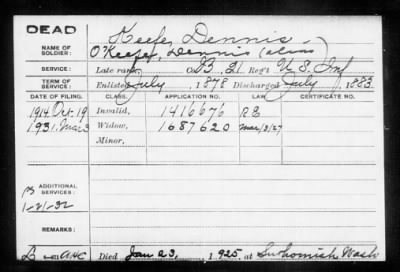 DEAD
Keefe, Dennis
NAME OF SOLDIER: O'Keefe, Dennis (alias)
SERVICE: Late rank, Co. B, 21 Reg't U. S. Inf
TERM OF SERVICE: Enlisted July, 1878 Discharged July, 1883
DATE OF FILING. CLASS. APPLICATION NO. LAW. CERTIFICATE NO.
1914 Oct-19 Invalid, 1416676 RE
1931 Mar 3 Widow, 1687620 Mar/3/27
Minor,
ADDITIONAL SERVICES:
1-21-32
REMARKS:
Died Jan 23, 1925, at Snohomish Wash